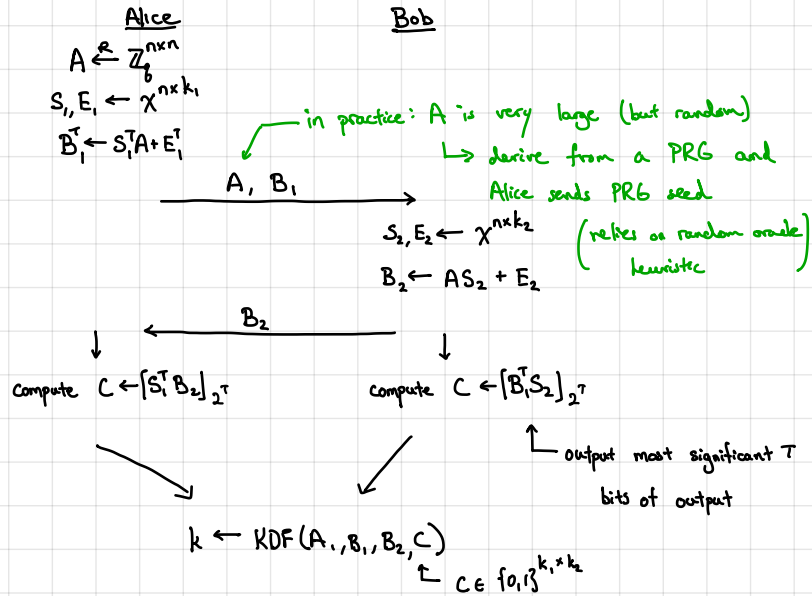 Alice
Bob
A ←ᴿ ℤ_q^{n×n}
S₁, E₁ ← χ^{n×k₁}
B₁ᵀ ← S₁ᵀA + E₁ᵀ
in practice: A is very large (but random)
↳ derive from a PRG and
Alice sends PRG seed
(relies on random oracle
heuristic)
A, B₁
S₂, E₂ ← χ^{n×k₂}
B₂ ← AS₂ + E₂
B₂
compute C ← ⌈S₁ᵀB₂⌋_{2^τ}
compute C ← ⌈B₁ᵀS₂⌋_{2^τ}
output most significant τ
bits of output
k ← KDF(A, B₁, B₂, C)
C ∈ {0,1}^{k₁×k₂}